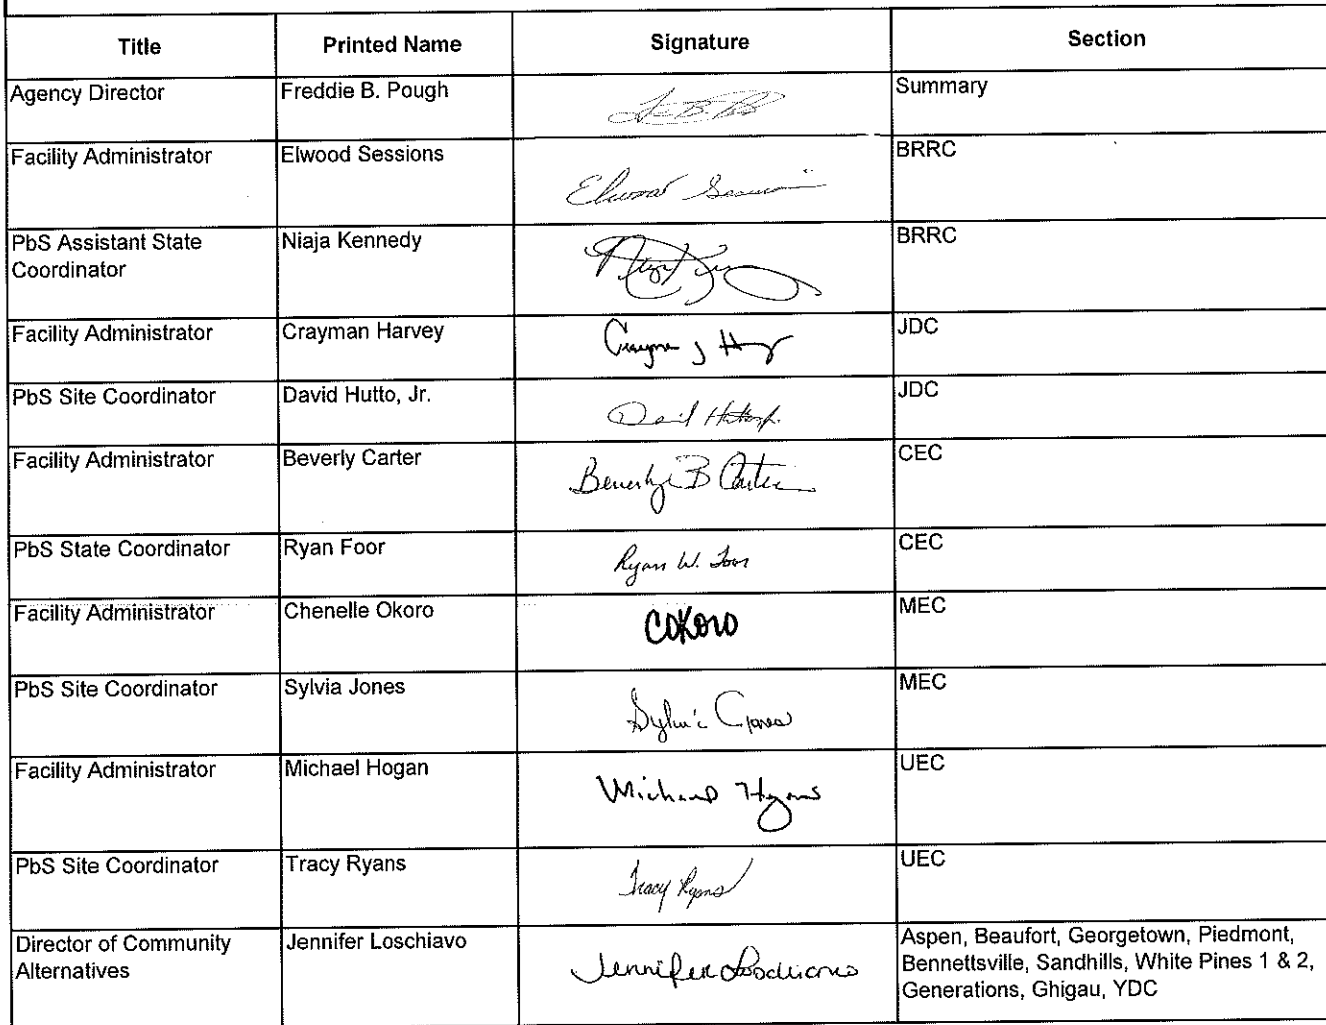 Title Printed Name Signature Section
Agency Director Freddie B. Pough Summary
Facility Administrator Elwood Sessions Elwood Sessions BRRC
PbS Assistant State Niaja Kennedy BRRC
Coordinator
Facility Administrator Crayman Harvey Crayman J Harvey JDC
PbS Site Coordinator David Hutto, Jr. David Hutto Jr. JDC
Facility Administrator Beverly Carter Beverly B Carter CEC
PbS State Coordinator Ryan Foor Ryan W. Foor CEC
Facility Administrator Chenelle Okoro COKoro MEC
PbS Site Coordinator Sylvia Jones Sylvia Jones MEC
Facility Administrator Michael Hogan Michael Hogan UEC
PbS Site Coordinator Tracy Ryans Tracy Ryans UEC
Director of Community Jennifer Loschiavo Jennifer Loschiavo Aspen, Beaufort, Georgetown, Piedmont,
Alternatives Bennettsville, Sandhills, White Pines 1 & 2,
Generations, Ghigau, YDC